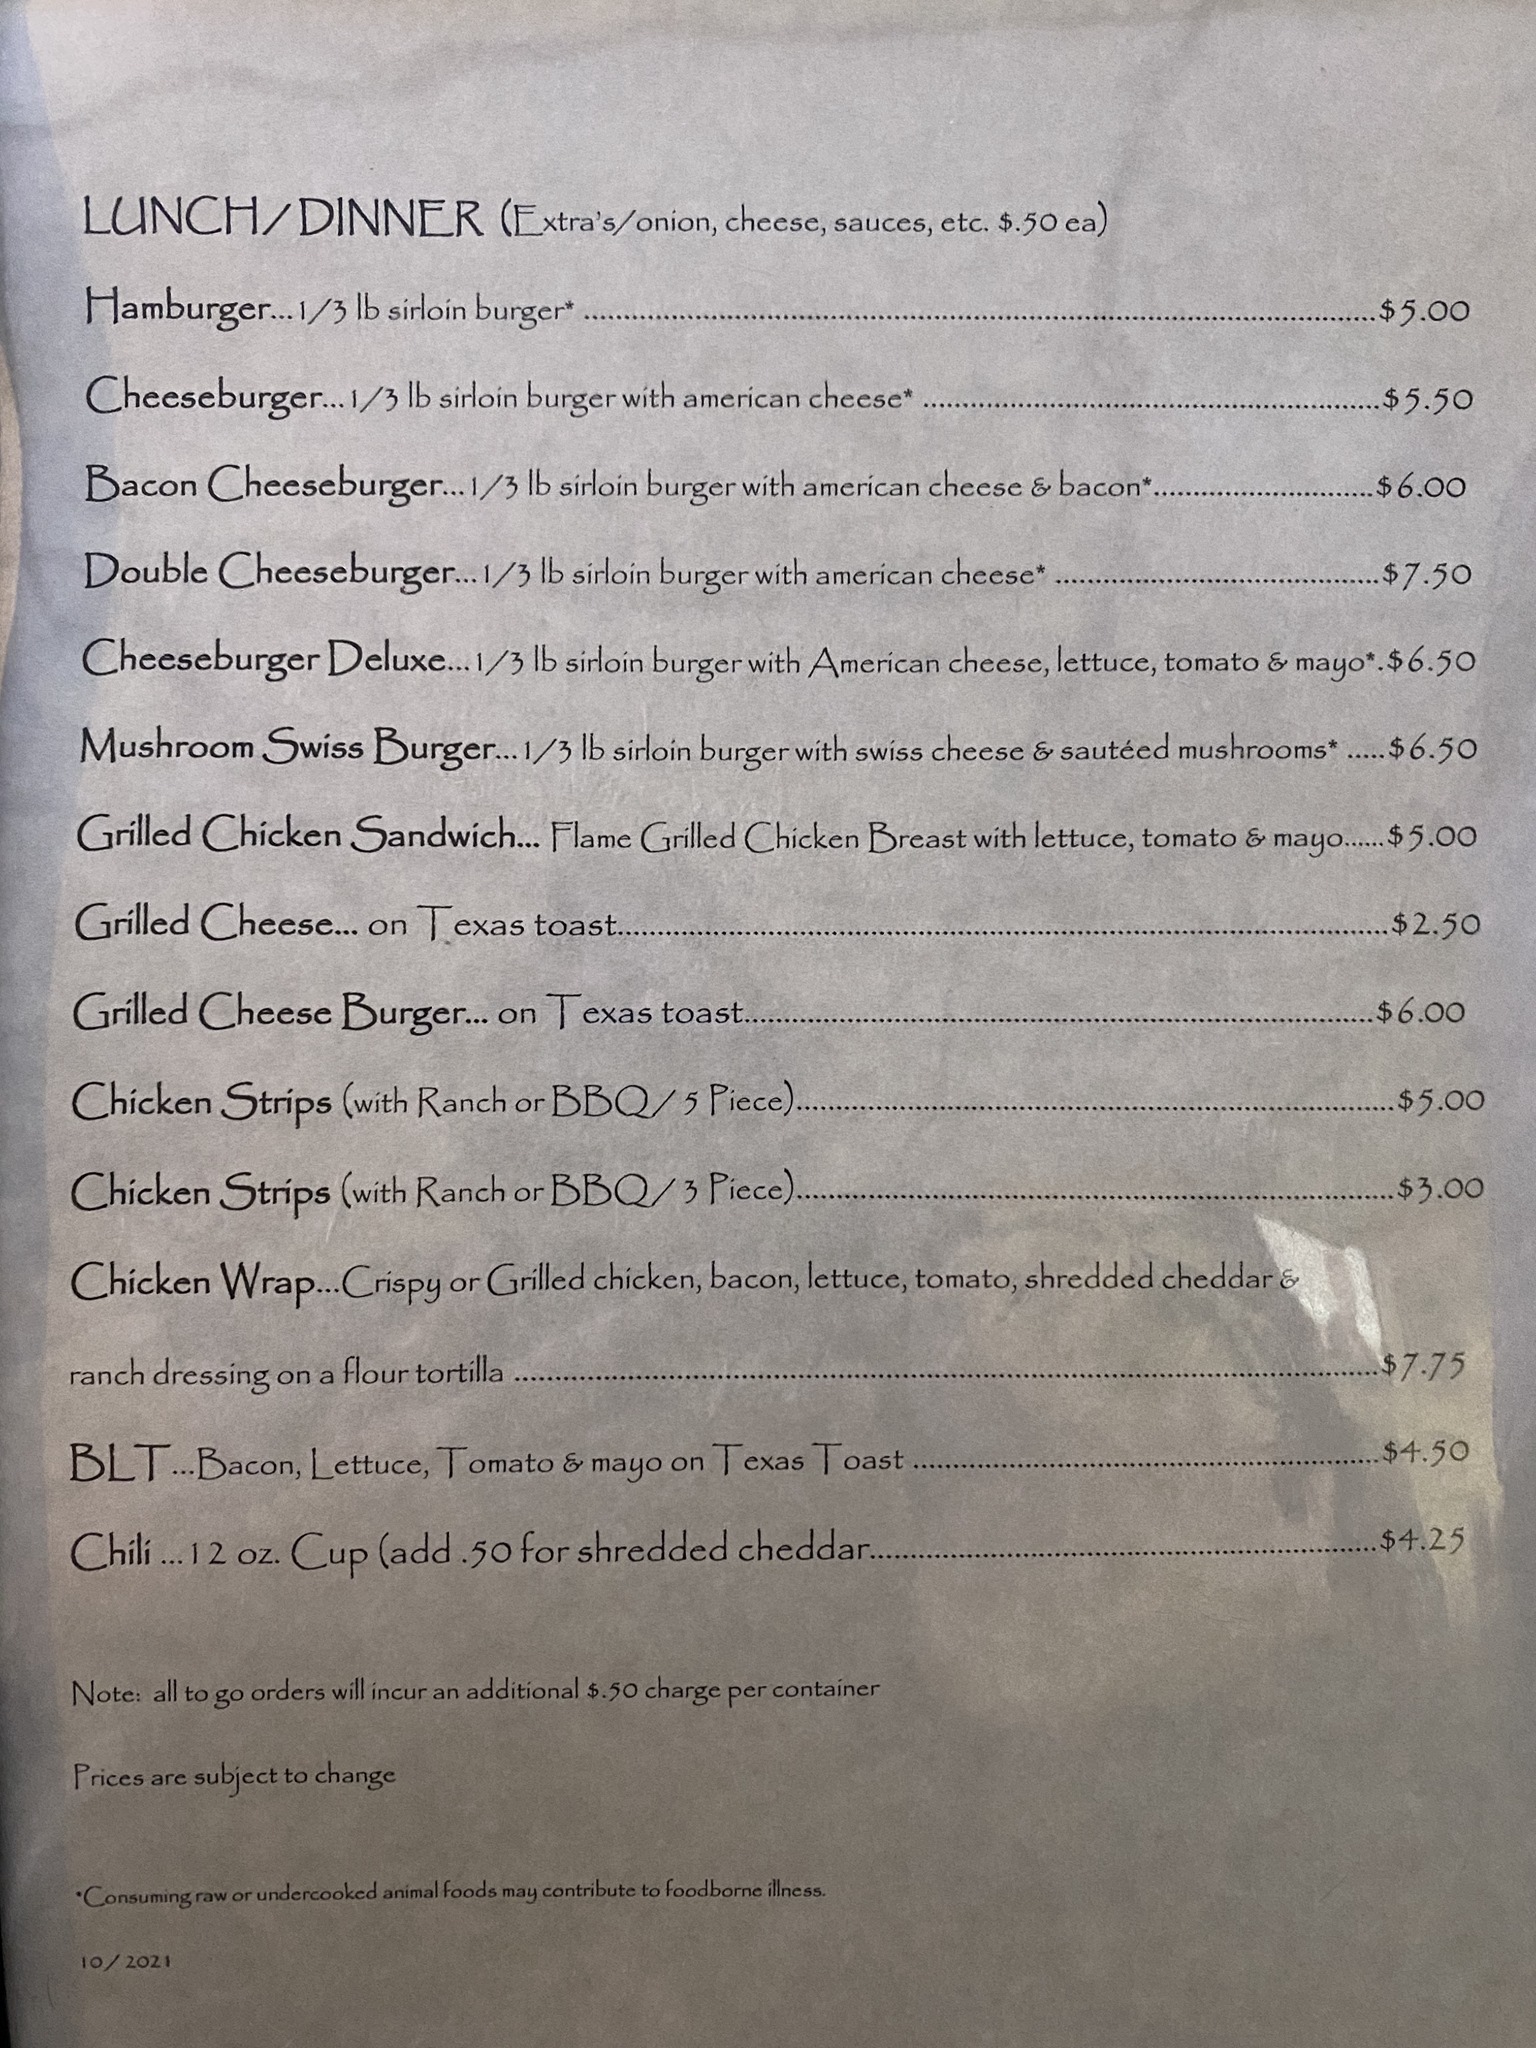 LUNCH/DINNER (Extra's/onion, cheese, sauces, etc. $.50 ea)
Hamburger...1/3 lb sirloin burger* ....................$5.00
Cheeseburger...1/3 lb sirloin burger with american cheese* ....................$5.50
Bacon Cheeseburger...1/3 lb sirloin burger with american cheese & bacon*....................$6.00
Double Cheeseburger...1/3 lb sirloin burger with american cheese* ....................$7.50
Cheeseburger Deluxe...1/3 lb sirloin burger with American cheese, lettuce, tomato & mayo*.$6.50
Mushroom Swiss Burger...1/3 lb sirloin burger with swiss cheese & sautéed mushrooms* .....$6.50
Grilled Chicken Sandwich... Flame Grilled Chicken Breast with lettuce, tomato & mayo......$5.00
Grilled Cheese... on Texas toast....................$2.50
Grilled Cheese Burger... on Texas toast....................$6.00
Chicken Strips (with Ranch or BBQ/ 5 Piece)....................$5.00
Chicken Strips (with Ranch or BBQ/ 3 Piece)....................$3.00
Chicken Wrap...Crispy or Grilled chicken, bacon, lettuce, tomato, shredded cheddar &
ranch dressing on a flour tortilla ....................$7.75
BLT...Bacon, Lettuce, Tomato & mayo on Texas Toast ....................$4.50
Chili ...12 oz. Cup (add .50 for shredded cheddar....................$4.25
Note: all to go orders will incur an additional $.50 charge per container
Prices are subject to change
*Consuming raw or undercooked animal foods may contribute to foodborne illness.
10/2021